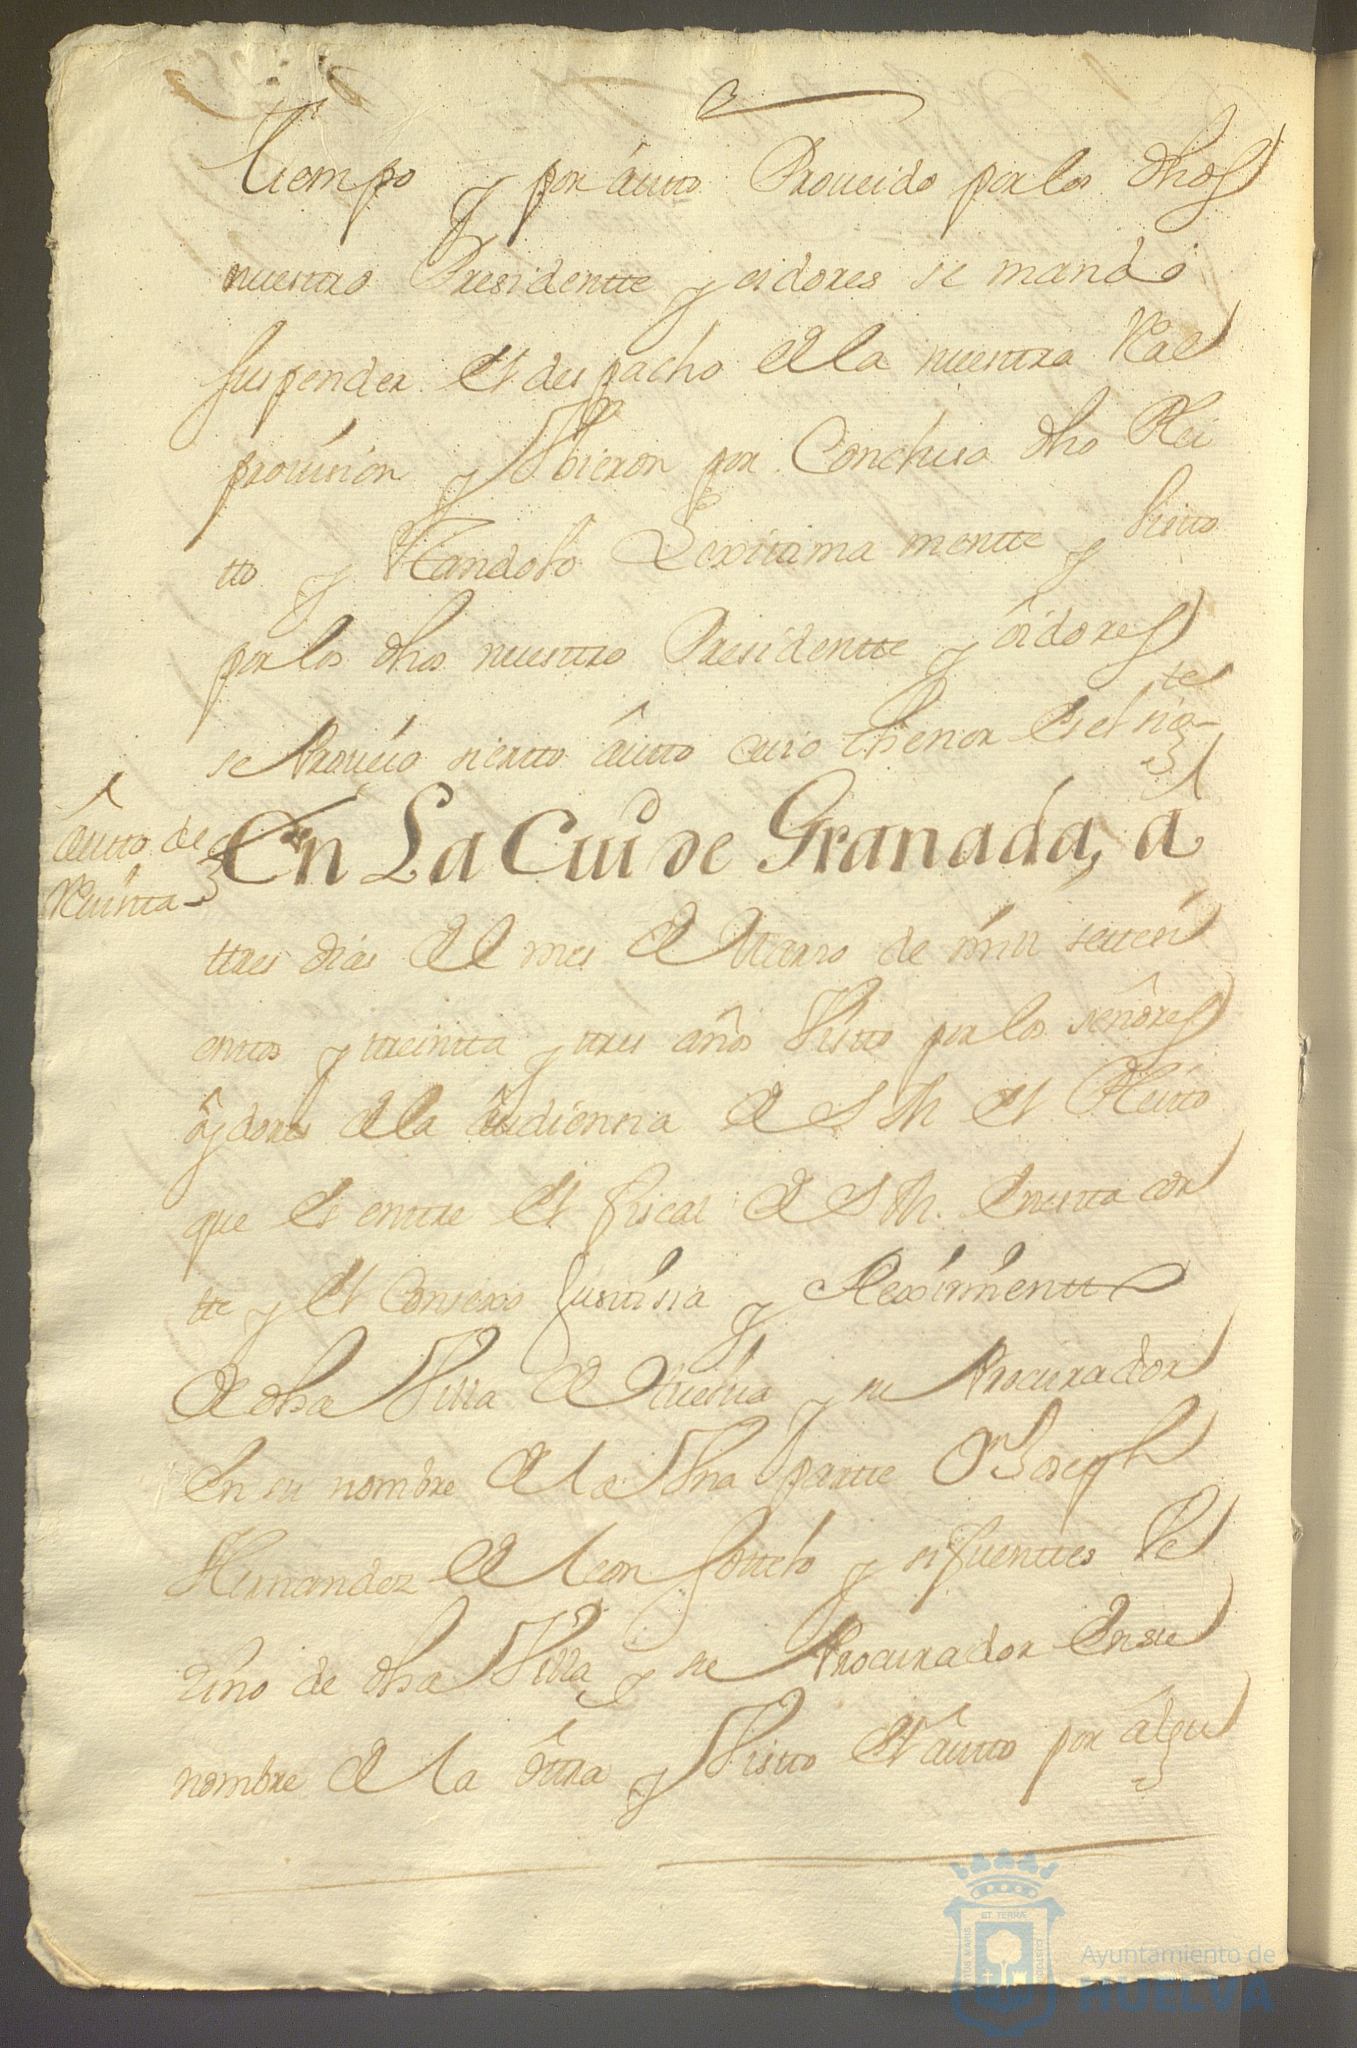 tiempo y por âutto Proueido por los dhos
nuestro Presidentte y oidores se mandó
suspender el despacho de la nuestra Ral
prouision y Vbieron por Conclusa dho Plei
tto y estandolo Lexitima mentte y Visto
por los dhos nuestro Presidentte y ôidores
se Proueio sierto âutto cuio thenor es el sigte
âutto de
Reuista
En La Ciud de Granada, â
ttres dias del mes de Marzo de mill setteci
enttos y treintta y ttres años Visto por los señores
ôydores de la âudiencia de S M el Pleitto
que es enttre el fiscal de S M. en estta cor
tte y el Consexo Justisia y Reximientto
de dha Villa de Huelua y su Procurador
en su nombre de la Vna partte Dn Joseph
Hernandez de leon sottelo y sifuenttes Ve
zino de dha Villa y su Procurador en su
nombre de la ôttra y Visto el âutto por âlgu
ET TERRÆ
Ayuntamiento de
HUELVA